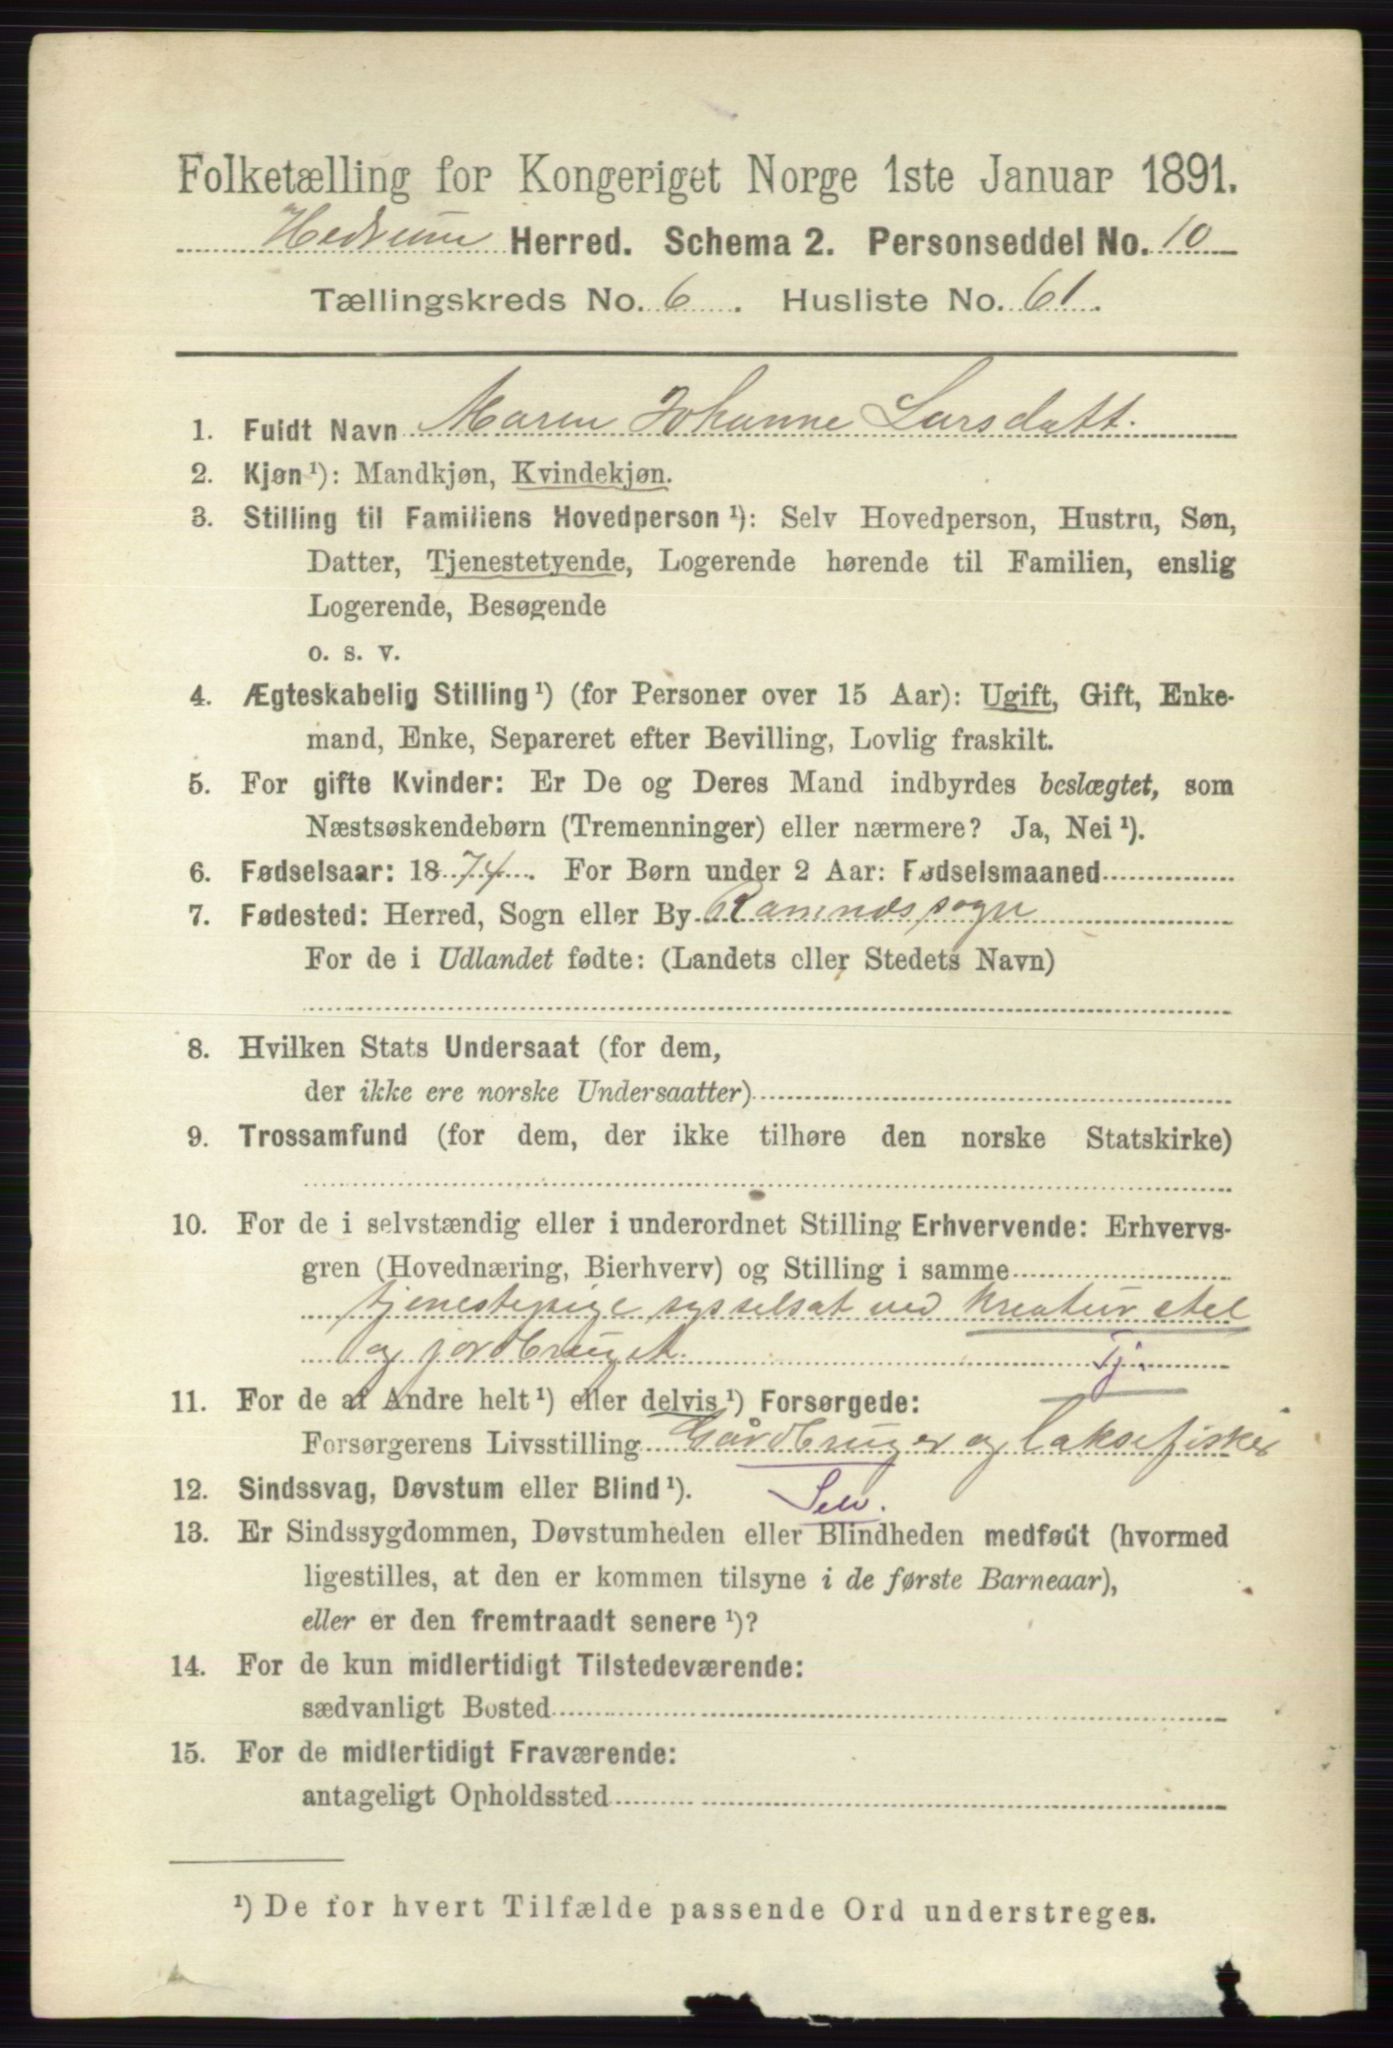 Folketælling for Kongeriget Norge 1ste Januar 1891.
Hedrum Herred. Schema 2. Personseddel No. 10
Tællingskreds No. 6. Husliste No. 61.
1. Fuldt Navn Maren Johanne Larsdatt.
2. Kjøn¹): Mandkjøn, Kvindekjøn.
3. Stilling til Familiens Hovedperson¹): Selv Hovedperson, Hustru, Søn,
Datter, Tjenestetyende, Logerende hørende til Familien, enslig
Logerende, Besøgende
o. s. v.
4. Ægteskabelig Stilling¹) (for Personer over 15 Aar): Ugift, Gift, Enke-
mand, Enke, Separeret efter Bevilling, Lovlig fraskilt.
5. For gifte Kvinder: Er De og Deres Mand indbyrdes beslægtet, som
Næstsøskendebørn (Tremenninger) eller nærmere? Ja, Nei¹).
6. Fødselsaar: 1874. For Børn under 2 Aar: Fødselsmaaned
7. Fødested: Herred, Sogn eller By Ramnds sogn
For de i Udlandet fødte: (Landets eller Stedets Navn)
8. Hvilken Stats Undersaat (for dem,
der ikke ere norske Undersaatter)
9. Trossamfund (for dem, der ikke tilhøre den norske Statskirke)
10. For de i selvstændig eller i underordnet Stilling Erhvervende: Erhvervs-
gren (Hovednæring, Bierhverv) og Stilling i samme
tjenestepige sysselsat ved kreatur stel
og jordbruget Tj.
11. For de af Andre helt¹) eller delvis¹) Forsørgede:
Forsørgerens Livsstilling Gårdbruger og laksefisker
12. Sindssvag, Døvstum eller Blind¹). Selv.
13. Er Sindssygdommen, Døvstumheden eller Blindheden medfødt (hvormed
ligestilles, at den er kommen tilsyne i de første Barneaar),
eller er den fremtraadt senere¹)?
14. For de kun midlertidigt Tilstedeværende:
sædvanligt Bosted
15. For de midlertidigt Fraværende:
antageligt Opholdssted
¹) De for hvert Tilfælde passende Ord understreges.